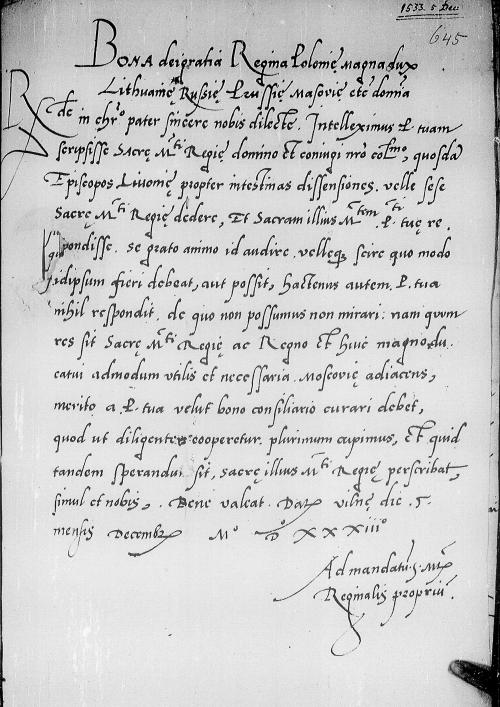 1533. 5 Dec:
645
Bona dei gratia Regina Polonię magna dux
Lithuanię Russię Prussię Masovię etc domina
Rx de in chro pater sincere nobis dilecte. Intelleximus P. tuam
scripsisse Sacrę Mti Regię domino et coniugi nro colmo, quosdā
Episcopos Livonię propter intestinas dissensiones, velle sese
Sacrę Mti Regię dedere, Et Sacram illius Mtem P.ti tuę re.
spondisse. se grato animo id audire velleqz scire quo modo
idipsum fieri debeat, aut possit, hactenus autem. P. tua
nihil respondit. de quo non possumus non mirari: nam quum
res sit Sacrę Mti Regię ac Regno et huic magno du.
catui admodum utilis et necessaria. Moscovię adiacens,
merito a P. tua velut bono consiliario curari debet,
quod ut diligenter cooperetur. plurimum cupimus, Et quid
tandem sperandū sit, sacrę illius Mti Regię perscribat,
simul et nobis,. Bene valeat. Dat vilnę die. 5.
mensis Decembr Mo Do XXXiiio
Ad mandatū. s. Mtis
Reginalis propriū.